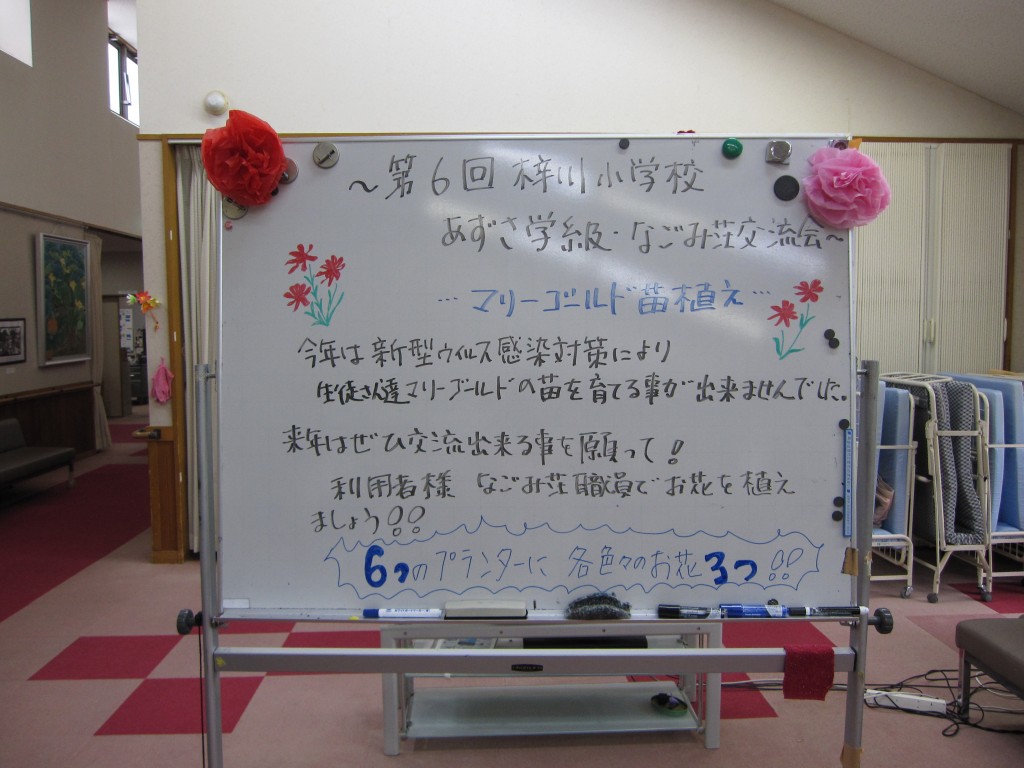 ～第6回 梓川小学校
あずさ学級・なごみ荘交流会～
…マリーゴールド苗植え…
今年は新型ウィルス感染対策により
生徒さん達マリーゴールドの苗を育てる事が出来ませんでした。
来年はぜひ交流出来る事を願って！
利用者様 なごみ荘職員でお花を植え
ましょう!!
6つのプランターに 各色々のお花3つ!!